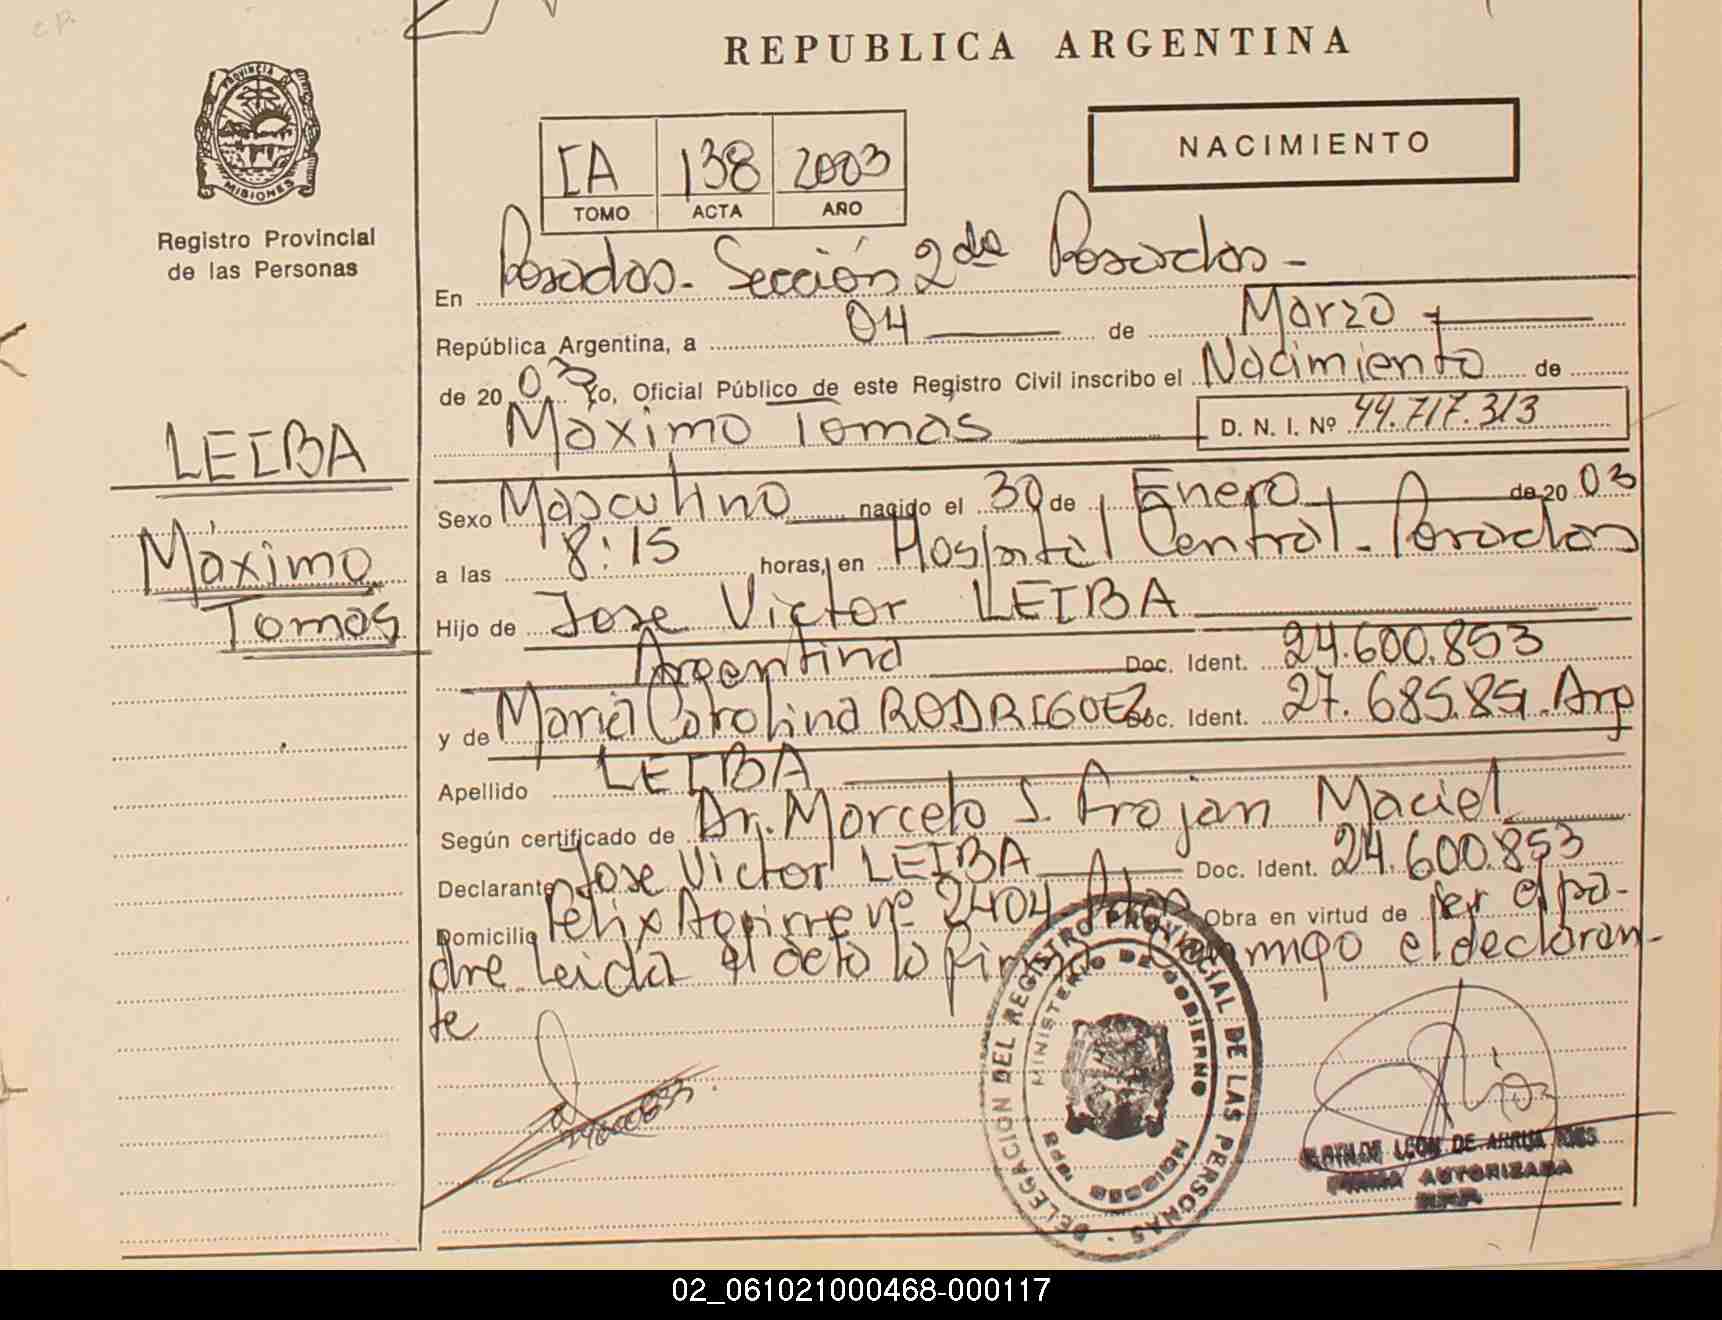 REPUBLICA ARGENTINA
PROVINCIA DE
MISIONES
Registro Provincial
de las Personas
IA 138 2003
TOMO ACTA AÑO
NACIMIENTO
En Posadas. Sección 2da Posadas -
República Argentina, a 04 de Marzo
de 20 03 Yo, Oficial Público de este Registro Civil inscribo el Nacimiento de
Máximo Tomas D. N. I. Nº 44.717.313
LEIBA
Máximo
Tomas
Sexo Masculino nacido el 30 de Enero de 20 03
a las 8:15 horas, en Hospital Central - Posadas
Hijo de Jose Victor LEIBA
Argentino Doc. Ident. 24.600.853
y de Maria Carolina RODRIGUEZ Doc. Ident. 27.685.851. Arg
Apellido LEIBA
Según certificado de Dr. Marcelo J. Trojan Maciel
Declarante Jose Victor LEIBA Doc. Ident. 24.600.853
Domicilio Felix Aguirre nº 2404 Pdas Obra en virtud de ser el pa-
dre Leida el acta la firma conmigo el declaran-
te
DELEGACION DEL REGISTRO PROVINCIAL DE LAS PERSONAS
MINISTERIO DE GOBIERNO
MISIONES
24600853
LEON DE ARRUA
FIRMA AUTORIZADA
02_061021000468-000117